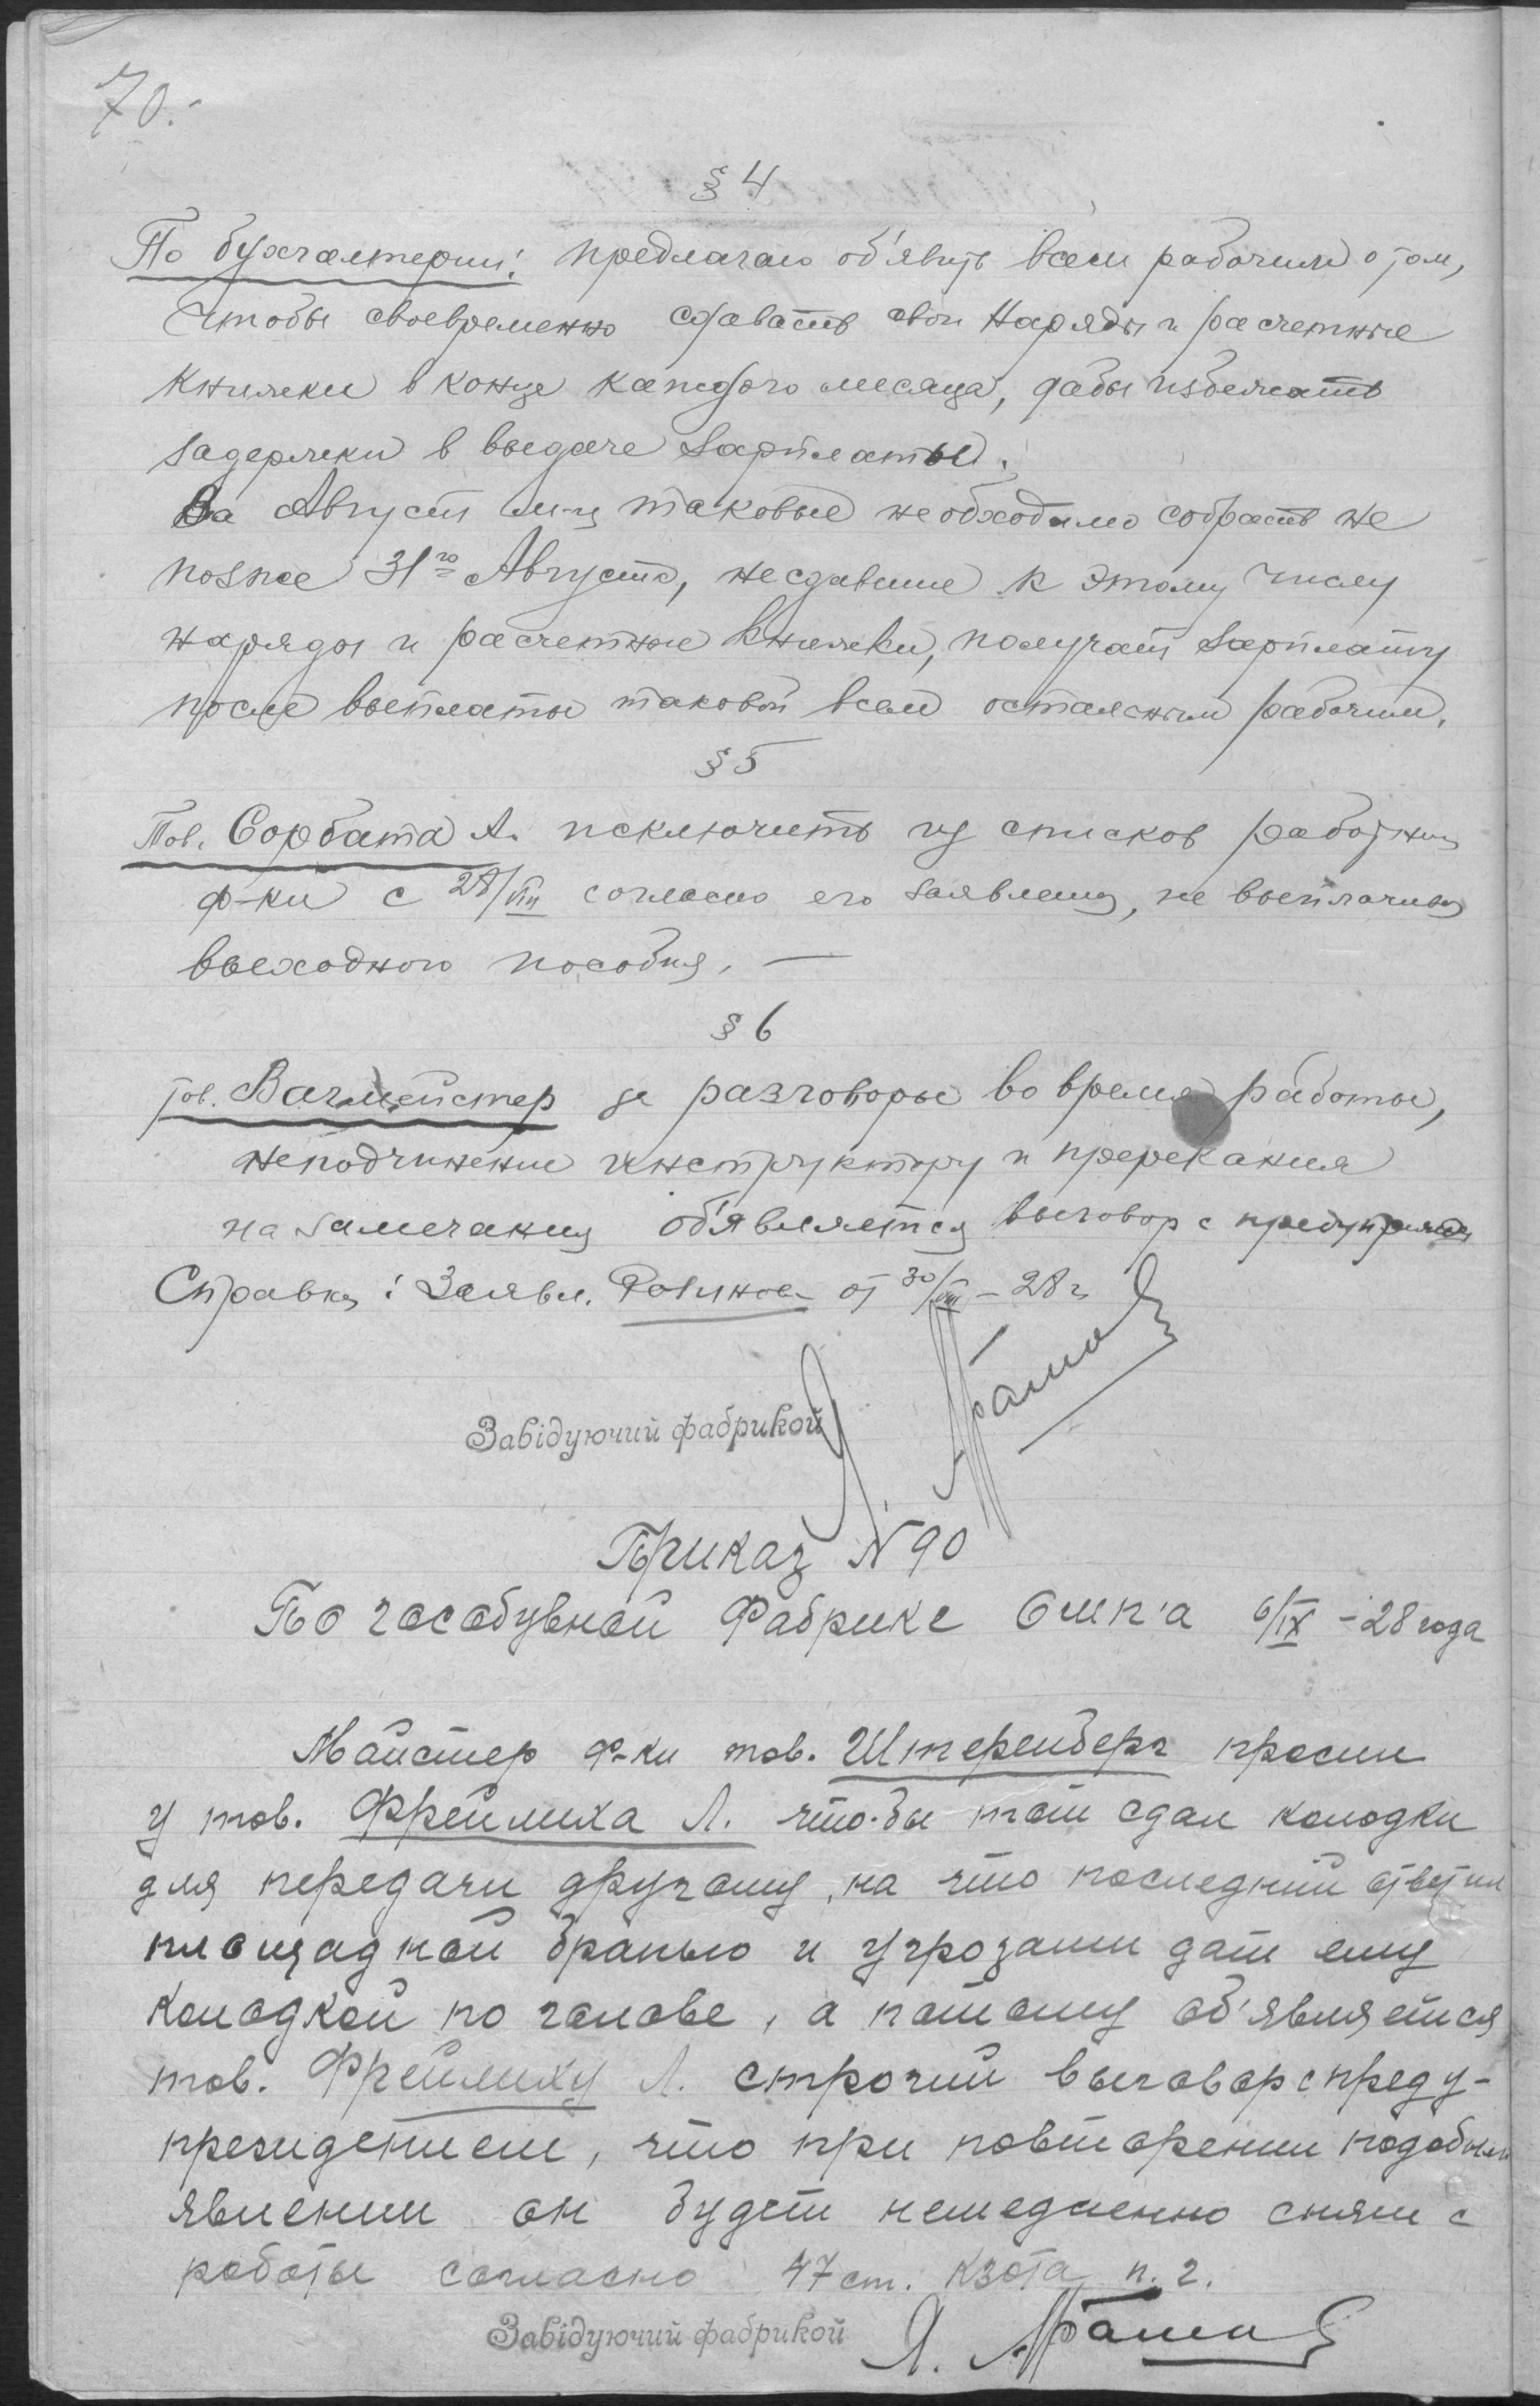 70.
§ 4
По бухгалтерии: предлагаю об'явить всем рабочим о том,
чтобы своевременно сдавать свои наряды и расчетные
книжки в конце каждого месяца, дабы избежать
задержки в выдаче зарплаты.
За Август м-ц таковые необходимо собрать не
позже 31го Августа, несдавшие к этому числу
наряды и расчетные книжки, получат зарплату
после выплаты таковой всем остальным рабочим.
§ 5
Тов. Сорбата А. исключить из списков
ф-ки с 28/VIII согласно его заявления, не выплачивая
выходного пособия. —
§ 6
тов. Вагмейстер за разговоры во время работы,
неподчинение инструктору и пререкания
на замечания об'является выговор с
Справка: Заявл. от 30/VIII – 28 г.
Завідуючий фабрикой
Приказ N 90
По Гособувной Фабрике 6/IX – 28 года
Майстер ф-ки тов. Штеренберг просил
у тов. Фреймиха Л. что-бы тот сдал колодки
для передачи другому, на что последний ответил
площадной бранью и угрозами дать ему
колодкой по голове, а потому об'является
тов. Фреймиху Л. строгий выговор с преду-
преждением, что при повторении подобных
явлении он будет немедленно снят с
работы согласно 47 ст. Кзота п. г.
Завідуючий фабрикой Я.